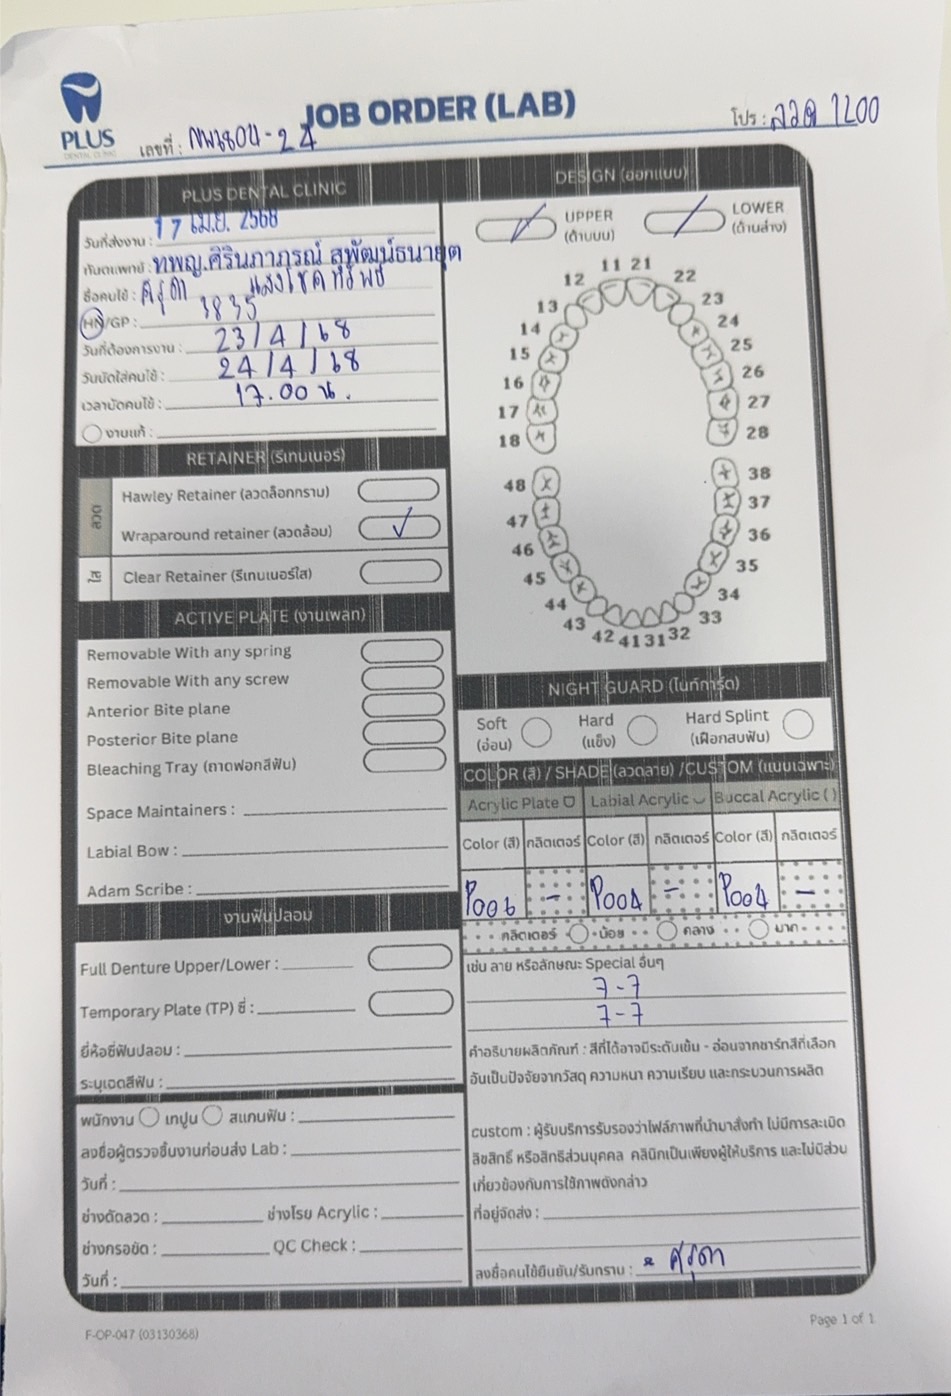 PLUS
DENTAL CLINIC
JOB ORDER (LAB)
เลขที่ : 6804-24
โปร : ลวด 1200
PLUS DENTAL CLINIC
วันที่ส่งงาน : 17 เม.ย. 2568
ทันตแพทย์ : ทพญ.ศิรินภาภรณ์ สุพัฒน์ธนายุต
ชื่อคนไข้ : ศรุตา แสงโชคทรัพย์
HN/GP : 3835
วันที่ต้องการงาน : 23/4/68
วันนัดใส่คนไข้ : 24/4/68
เวลานัดคนไข้ : 17.00 น.
งานแก้ :
RETAINER (รีเทนเนอร์)
ลวด
Hawley Retainer (ลวดล็อกกราม)
Wraparound retainer (ลวดล้อม) ✓
ใส
Clear Retainer (รีเทนเนอร์ใส)
ACTIVE PLATE (งานเพลท)
Removable With any spring
Removable With any screw
Anterior Bite plane
Posterior Bite plane
Bleaching Tray (ถาดฟอกสีฟัน)
Space Maintainers :
Labial Bow :
Adam Scribe :
งานฟันปลอม
Full Denture Upper/Lower :
Temporary Plate (TP) ซี่ :
ยี่ห้อซี่ฟันปลอม :
ระบุเฉดสีฟัน :
พนักงาน เทปูน สแกนฟัน :
ลงชื่อผู้ตรวจชิ้นงานก่อนส่ง Lab :
วันที่ :
ช่างดัดลวด : ช่างโรย Acrylic :
ช่างกรอขัด : QC Check :
วันที่ :
DESIGN (ออกแบบ)
UPPER (ด้านบน) LOWER (ด้านล่าง)
11 21
12 22
13 23
14 24
15 25
16 26
17 27
18 28
48 38
47 37
46 36
45 35
44 34
43 33
42 41 31 32
NIGHT GUARD (ไนท์การ์ด)
Soft (อ่อน) Hard (แข็ง) Hard Splint (เฝือกสบฟัน)
COLOR (สี) / SHADE (ลวดลาย) /CUSTOM (แบบเฉพาะ)
Acrylic Plate Labial Acrylic Buccal Acrylic ( )
Color (สี) กลิตเตอร์ Color (สี) กลิตเตอร์ Color (สี) กลิตเตอร์
P006 - P004 - P004 -
กลิตเตอร์ น้อย กลาง มาก
เช่น ลาย หรือลักษณะ Special อื่นๆ
7-7
7-7
คำอธิบายผลิตภัณฑ์ : สีที่ได้อาจมีระดับเข้ม - อ่อนจากชาร์ทสีที่เลือก
อันเป็นปัจจัยจากวัสดุ ความหนา ความเรียบ และกระบวนการผลิต
custom : ผู้รับบริการรับรองว่าไฟล์ภาพที่นำมาสั่งทำ ไม่มีการละเมิด
ลิขสิทธิ์ หรือสิทธิส่วนบุคคล คลินิกเป็นเพียงผู้ให้บริการ และไม่มีส่วน
เกี่ยวข้องกับการใช้ภาพดังกล่าว
ที่อยู่จัดส่ง :
ลงชื่อคนไข้ยืนยัน/รับทราบ : ศรุตา
F-OP-047 (03130368)
Page 1 of 1